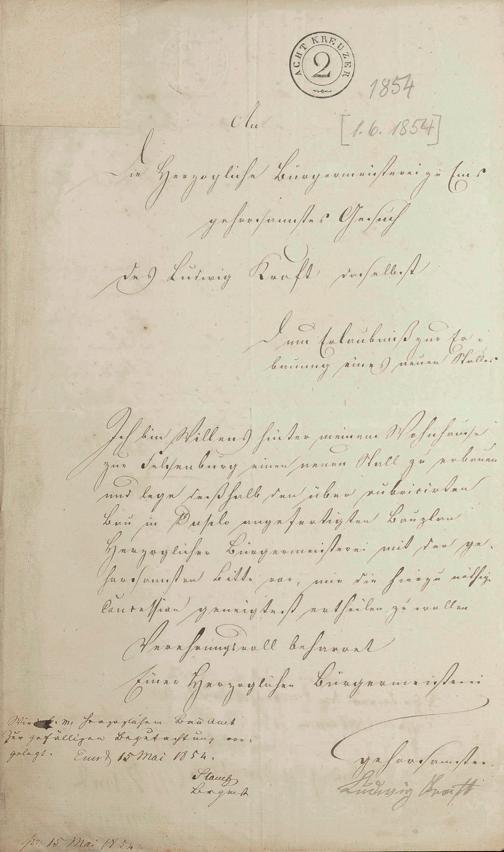 ACHT KREUZER
2
1854
[1.6.1854]
An
Die Herzogliche Bürgermeisterei zu Ems
gehorsamstes Gesuch
des Ludwig Kraft daselbst
Erlaubniß zur Er-
bauung eines neuen Stalles
Ich bin Willens hinter meinem Wohnhause
zur Felsenburg einen neuen Stall zu erbauen
und lege deßhalb den über rubricirten
Bau in Duplo angefertigten Bauplan
Herzoglicher Bürgermeisterei mit der ge-
horsamsten Bitte vor, mir die hierzu nöthige
Concession geneigtest ertheilen zu wollen
Verehrungsvoll beharret
Einer Herzoglichen Bürgermeisterei
gehorsamster
Ludwig Kraft
Wird H. Herzoglichem Bauamt
zur gefälligen Begutachtung vor-
gelegt. Ems 15 Mai 1854.
15 Mai 1854